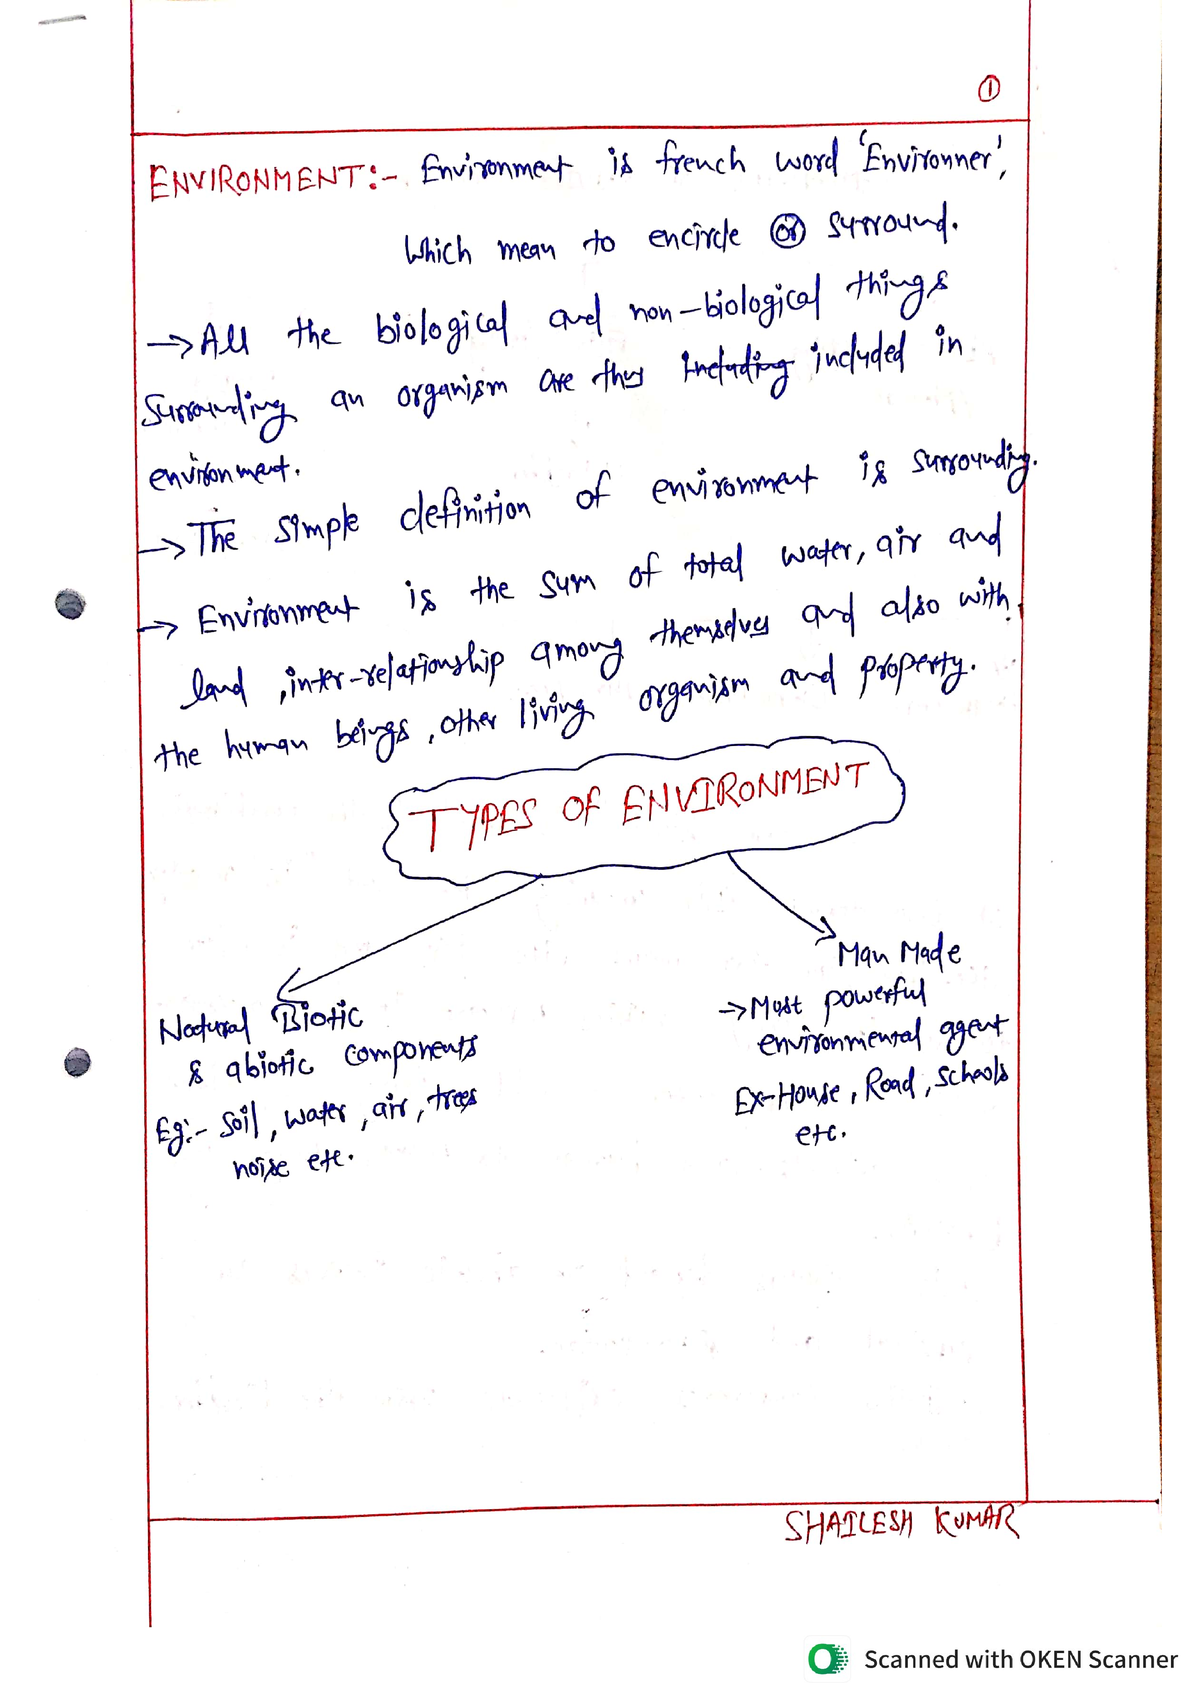 ①
ENVIRONMENT:- Environment is french word 'Environner',
Which mean to encircle or surround.
→ All the biological and non-biological things
Surrounding an organism are thus Including included in
environment.
→ The Simple definition of environment is surrounding.
→ Environment is the sum of total water, air and
land, inter-relationship among themselves and also with
the human beings, other living organism and property.
TYPES OF ENVIRONMENT
Natural Biotic
& abiotic components
Eg:- Soil, water, air, trees
noise etc.
Man Made
→ Most powerful
environmental agent
Ex-House, Road, Schools
etc.
SHAILESH KUMAR
Scanned with OKEN Scanner